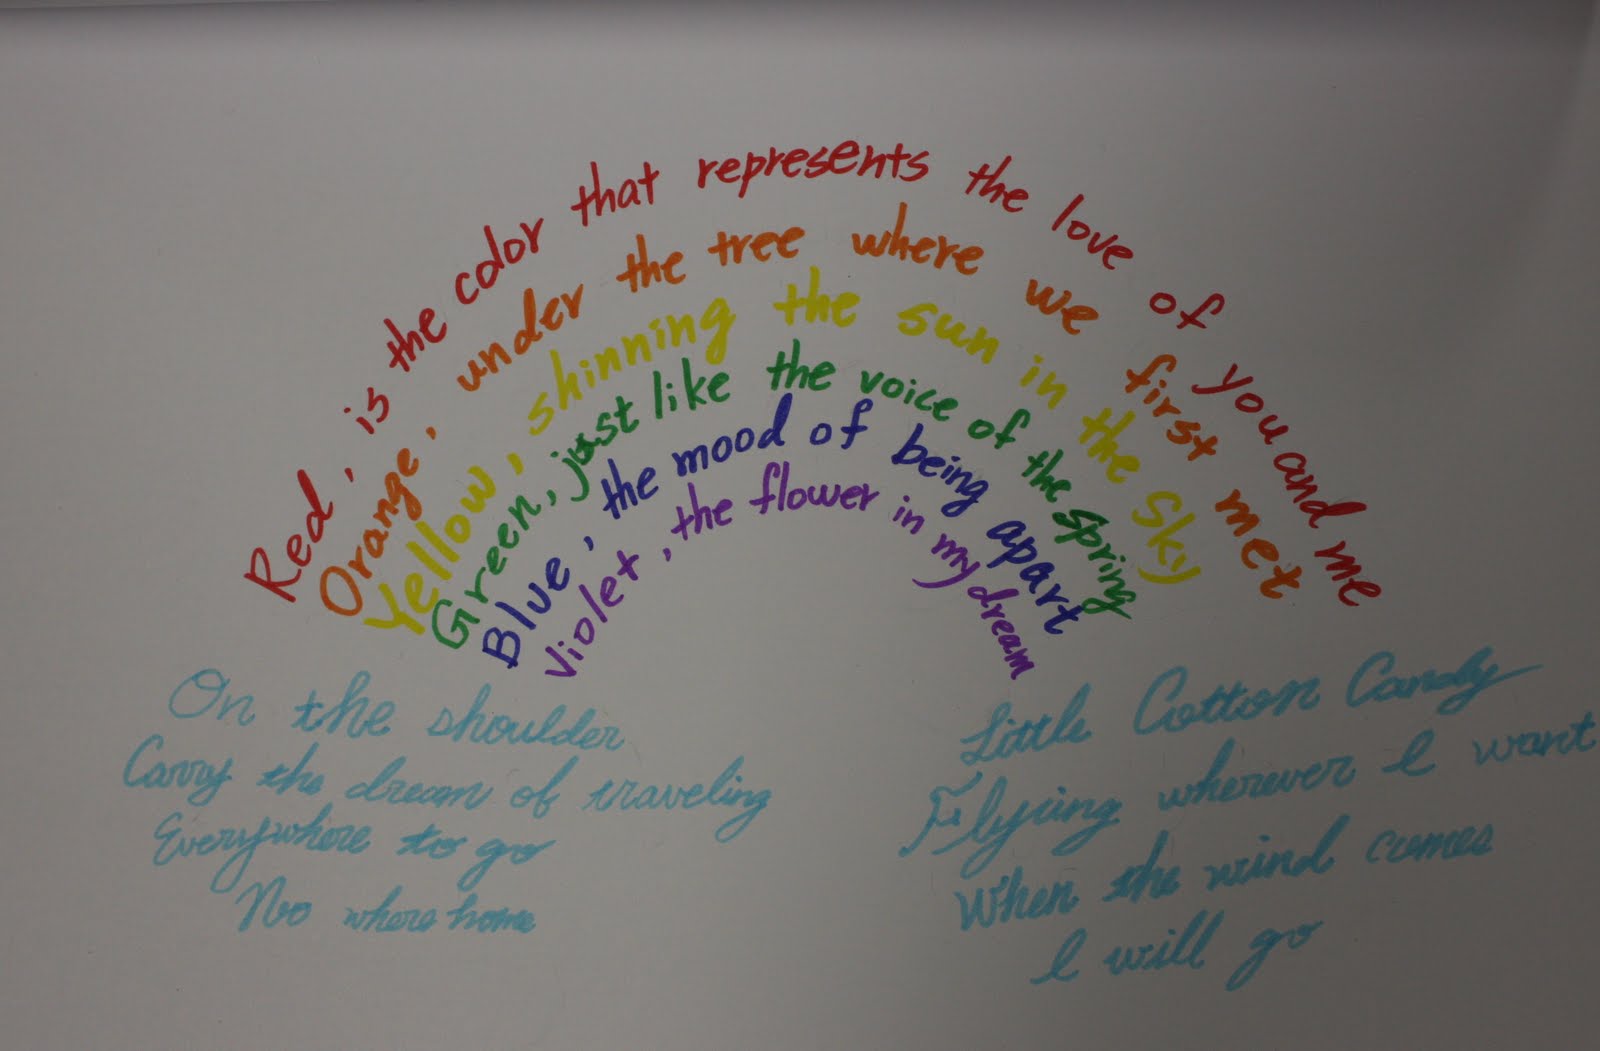 Red, is the color that represents the love of you and me
Orange, under the tree where we first met
Yellow, shinning the sun in the sky
Green, just like the voice of the spring
Blue, the mood of being apart
Violet, the flower in my dream
On the shoulder
Carry the dream of traveling
Everywhere to go
No where home
Little Cotton Candy
Flying wherever I want
When the wind comes
I will go